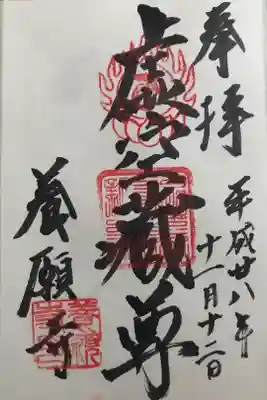 奉拝
平成廿八年
十一月十二日
虚空蔵尊
養願寺